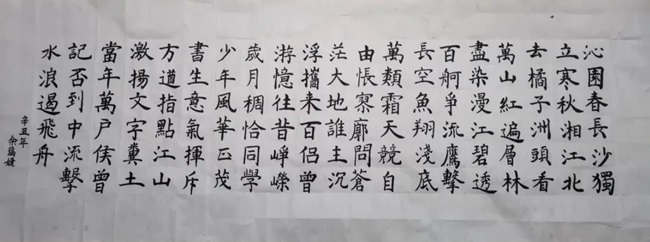 沁園春長沙獨
立寒秋湘江北
去橘子洲頭看
萬山紅遍層林
盡染漫江碧透
百舸爭流鷹擊
長空魚翔淺底
萬類霜天競自
由悵寥廓問蒼
茫大地誰主沉
浮攜來百侶曾
游憶往昔崢嶸
歲月稠恰同學
少年風華正茂
書生意氣揮斥
方遒指點江山
激揚文字糞土
當年萬戶侯曾
記否到中流擊
水浪遏飛舟
辛丑年
余